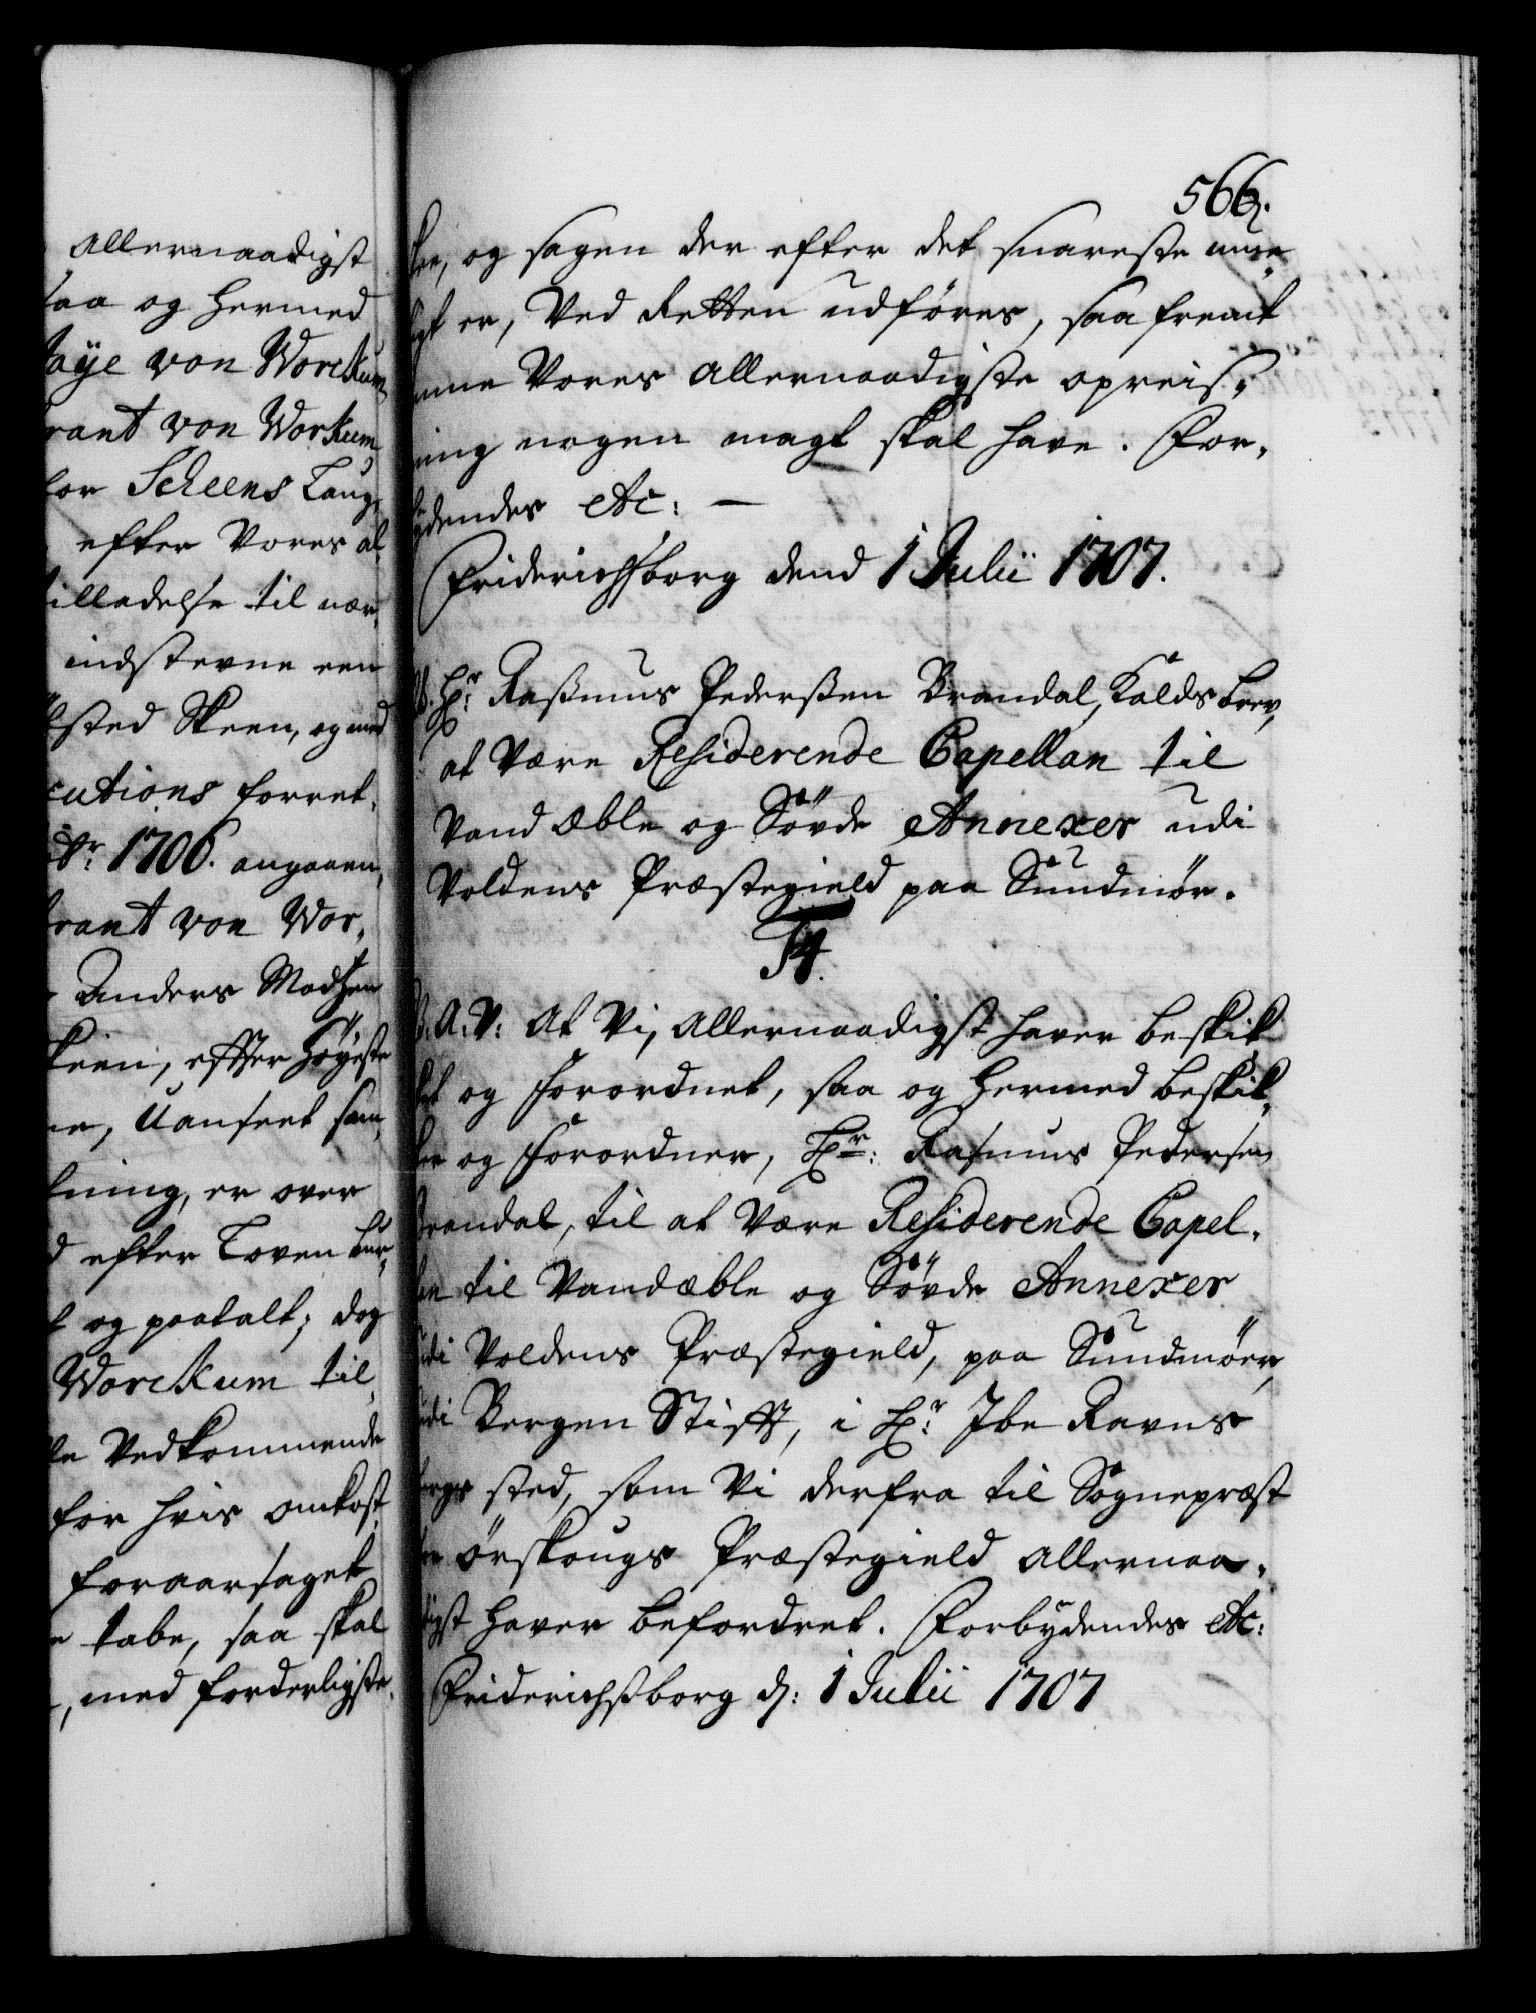 allernaadigst
saa og hermed
Taÿe von Worckum
rant von Workum
for Scheens Laug,
efter Vores al
tilladelse til nær,
indstevne een
lsted Skeen, og med
cutions forret,
Xbr: 1706. angaaen,
rant von Wor,
Anders Madsen
Skeen, efter Høyeste
ne, Uanseet saa,
tning, er over
d efter Loven bur,
t og paatalt; dog
Worckum til,
lle Vedkommende
for hvis omkost,
foraarsaget
n tabe, saa skal
, med forderligste,
566.
skee, og sagen der efter det snareste mue,
ligt er, Ved Retten udføres, saa fremt
denne Vores allernaadigste opreis,
ning nogen magt skal have. For,
bydendes etc: —
Friderichsborg dend 1 Julii 1707.
Hr: Rasmus Pedersen Brandal, Kalds brev,
at være Residerende Capellan til
Vand Æble og Søvde Annexer udi
Voldens Præstegield paa Sundmør.
F4.
G. A. V: At Vi, Allernaadigst haver beskik
ket og forordnet, saa og hermed beskik,
ker og forordner, Hr: Rasmus Pedersen
Brandal, til at være Residerende Capel,
lan til Vandæble og Søvde Annexer
udi Voldens Præstegield, paa Sundmøer,
udi Bergen Stift, i Hr: Ibe Ravns
bergs sted, som Vi derfra til Sognepræst
for Ørskougs Præstegield allernaa,
digst haver befordret. Forbydendes etc:
Friderichsborg d: 1 Julii 1707